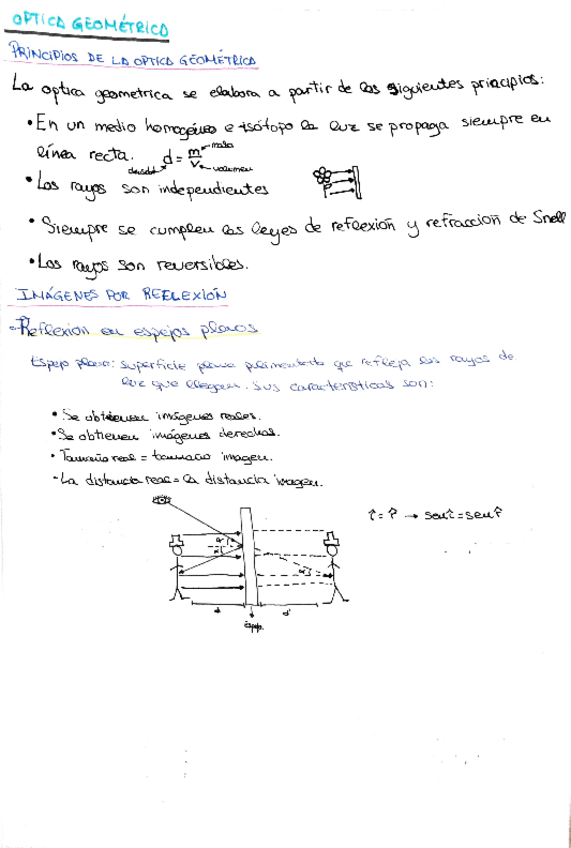 OPTICA GEOMÉTRICA
PRINCIPIOS DE LA OPTICA GEOMÉTRICA
La optica geometrica se elabora a partir de los siguientes principios:
• En un medio homogéneo e isótopo la luz se propaga siempre en
línea recta. d = m/v masa volumen densidad
• Los rayos son independientes
• Siempre se cumplen las leyes de reflexión y refracción de Snell
• Los rayos son reversibles.
IMÁGENES POR REFLEXIÓN
- Reflexión en espejos planos
Espejo plano: superficie plana pulimentada que refleja los rayos de
luz que llegan. Sus características son:
• Se obtienen imágenes reales.
• Se obtienen imágenes derechas.
• Tamaño real = tamaño imagen.
• La distancia real = la distancia imagen.
î = r̂ → sen î = sen r̂
α
α
α
d
d'
Espejo